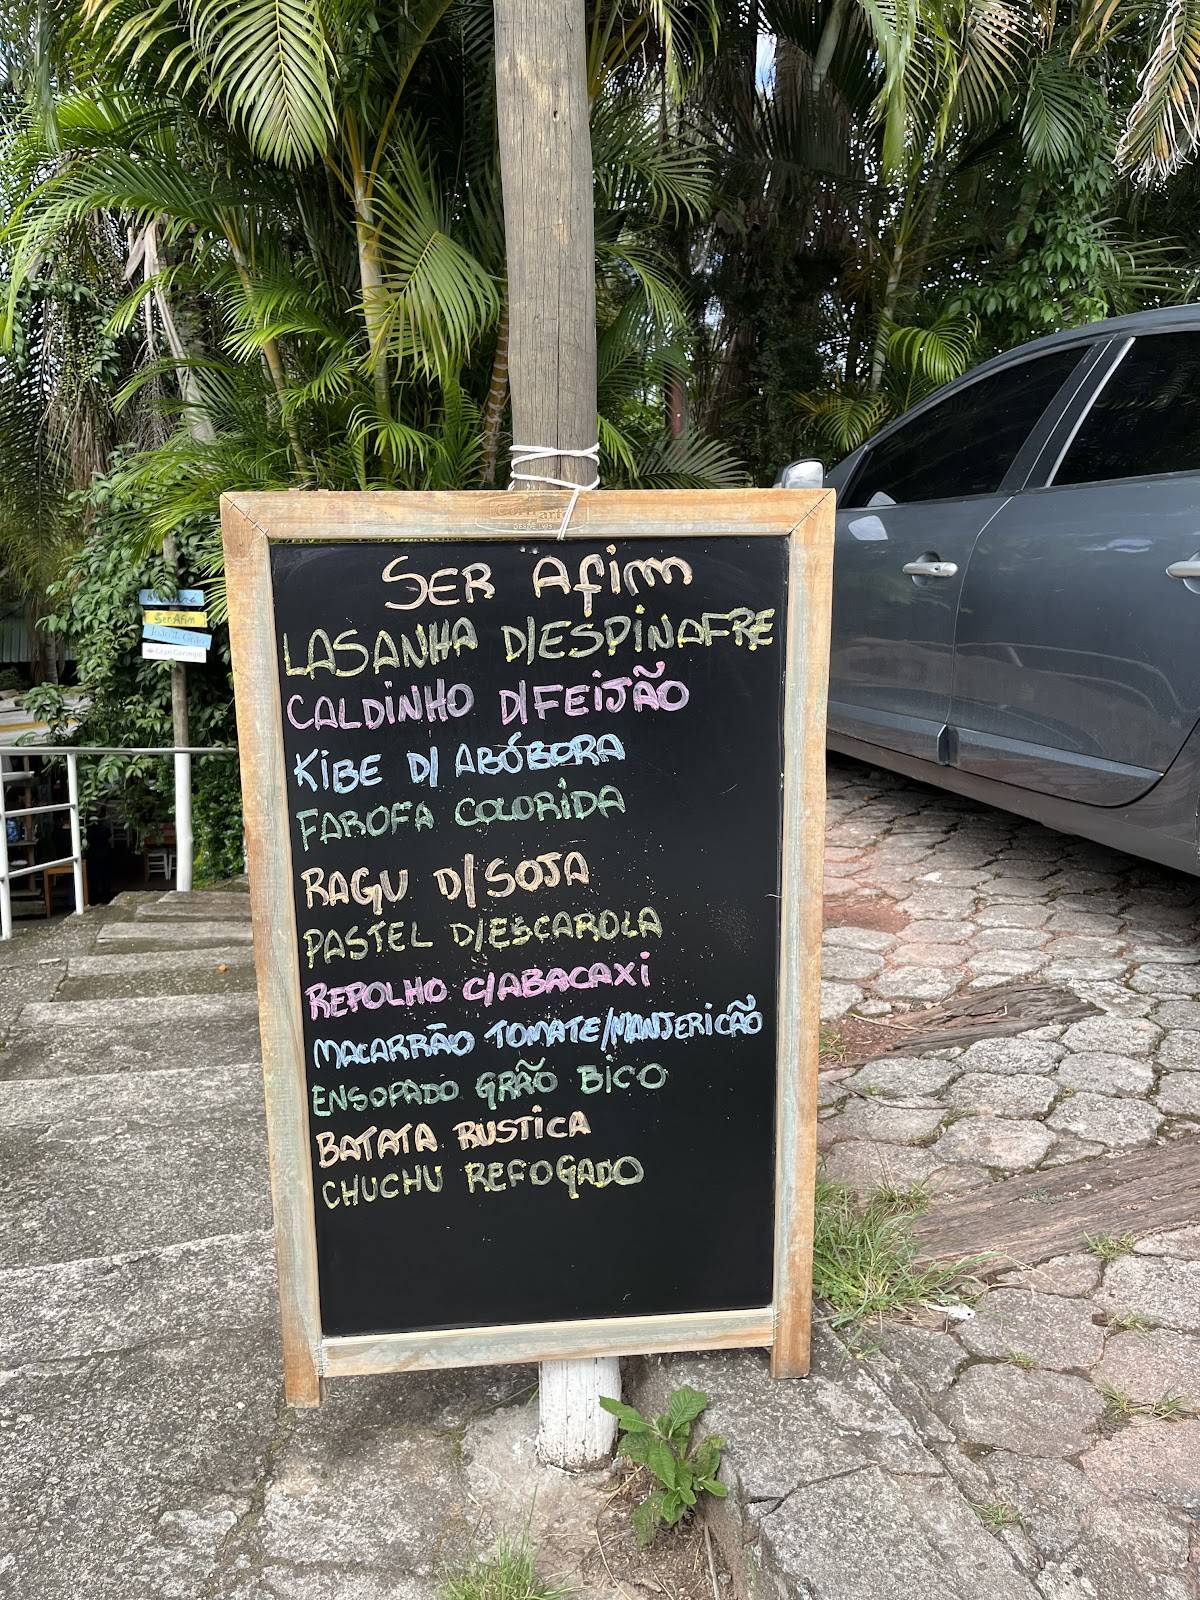 DESDE 1975
SER Afim
LASANHA D/ESPINAFRE
CALDINHO D/FEIJÃO
KIBE D/ ABÓBORA
FAROFA COLORIDA
RAGU D/SOJA
PASTEL D/ESCAROLA
REPOLHO C/ABACAXI
MACARRÃO TOMATE/MANJERICÃO
ENSOPADO GRÃO BICO
BATATA RUSTICA
CHUCHU REFOGADO
Ser Afim